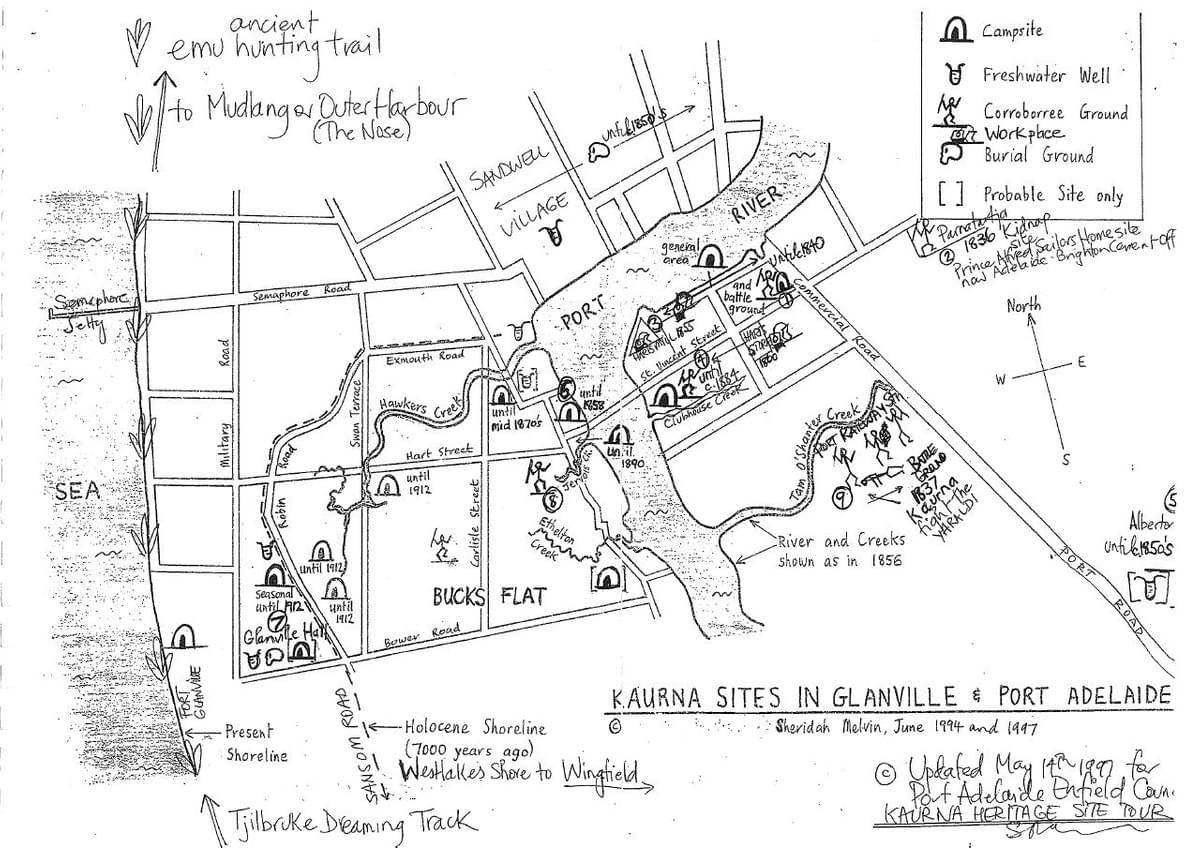 ancient
emu hunting trail
to Mudlanga or Outer Harbour
(The Nose)
Campsite
Freshwater Well
Corroborree Ground
Workplace
Burial Ground
[ ] Probable Site only
SANDWELL
VILLAGE
until 1850's
PORT
RIVER
general
area
until 1840
and
battle
ground
1
2
3
HART'S MILL 1855
St. Vincent Street
HART
1860
4
until
c.1884
Clubhouse Creek
Commercial Road
1836 Kidnap
site
2
Prince Alfred Sailors Home site
now Adelaide-Brighton Cement Off
North
W
E
S
Semaphore
Jetty
Semaphore Road
Military Road
Exmouth Road
Swan Terrace
Hawkers Creek
until
mid 1870's
6
until
1858
until
1890
Hart Street
Robin Road
until
1912
Carlisle Street
8
Ethelton
Creek
BUCKS FLAT
Bower Road
SEA
until 1912
until
1912
seasonal
until 1912
7
Glanville Hall
FORT
GLANVILLE
Present
Shoreline
SANSOM ROAD
Holocene Shoreline
(7000 years ago)
Westlakes Shore to Wingfield
Tjilbruke Dreaming Track
Tam O'Shanter Creek
PORT RAILWAY ST
9
BATTLE
GROUND
1837
Kaurna
fight the
River and Creeks
shown as in 1856
PORT ROAD
5
Alberton
until c.1850's
KAURNA SITES IN GLANVILLE & PORT ADELAIDE
© Sheridah Melvin, June 1994 and 1997
© Updated May 14th 1997 for
Port Adelaide Enfield Coun.
KAURNA HERITAGE SITE TOUR